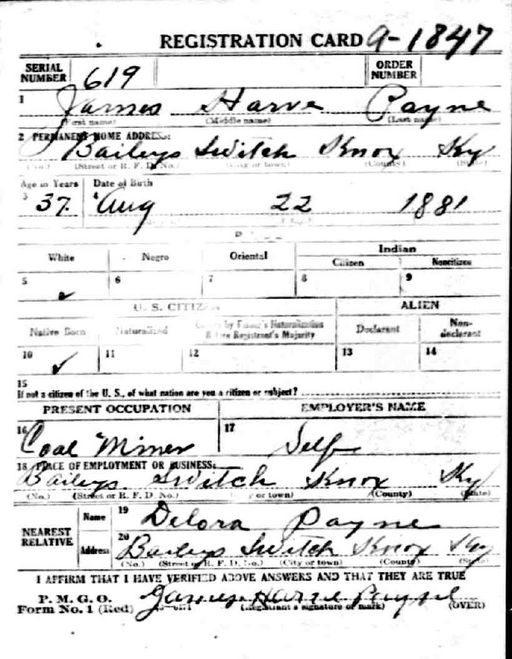 REGISTRATION CARD 9-1847
SERIAL NUMBER 619 ORDER NUMBER
1 James Harve Payne
(First name) (Middle name) (Last name)
2 PERMANENT HOME ADDRESS:
Baileys Switch Knox Ky
(No.) (Street or R. F. D. No.) (City or town) (County) (State)
Age in Years Date of Birth
3 37 Aug 22 1881
White Negro Oriental Indian
Citizen Noncitizen
5 ✓ 6 7 8 9
U. S. CITIZEN ALIEN
Native Born Naturalized Citizen by Father's Naturalization Before Registrant's Majority Declarant Non-declarant
10 ✓ 11 12 13 14
15
If not a citizen of the U. S., of what nation are you a citizen or subject?
PRESENT OCCUPATION EMPLOYER'S NAME
16 Coal Miner 17 Self
18 PLACE OF EMPLOYMENT OR BUSINESS:
Baileys Switch Knox Ky
(No.) (Street or R. F. D. No.) (City or town) (County) (State)
NEAREST RELATIVE Name 19 Delora Payne
Address 20 Baileys Switch Knox Ky
(No.) (Street or R. F. D. No.) (City or town) (County) (State)
I AFFIRM THAT I HAVE VERIFIED ABOVE ANSWERS AND THAT THEY ARE TRUE
P. M. G. O.
Form No. 1 (Red) James Harve Payne
(Registrant's signature or mark) (OVER)